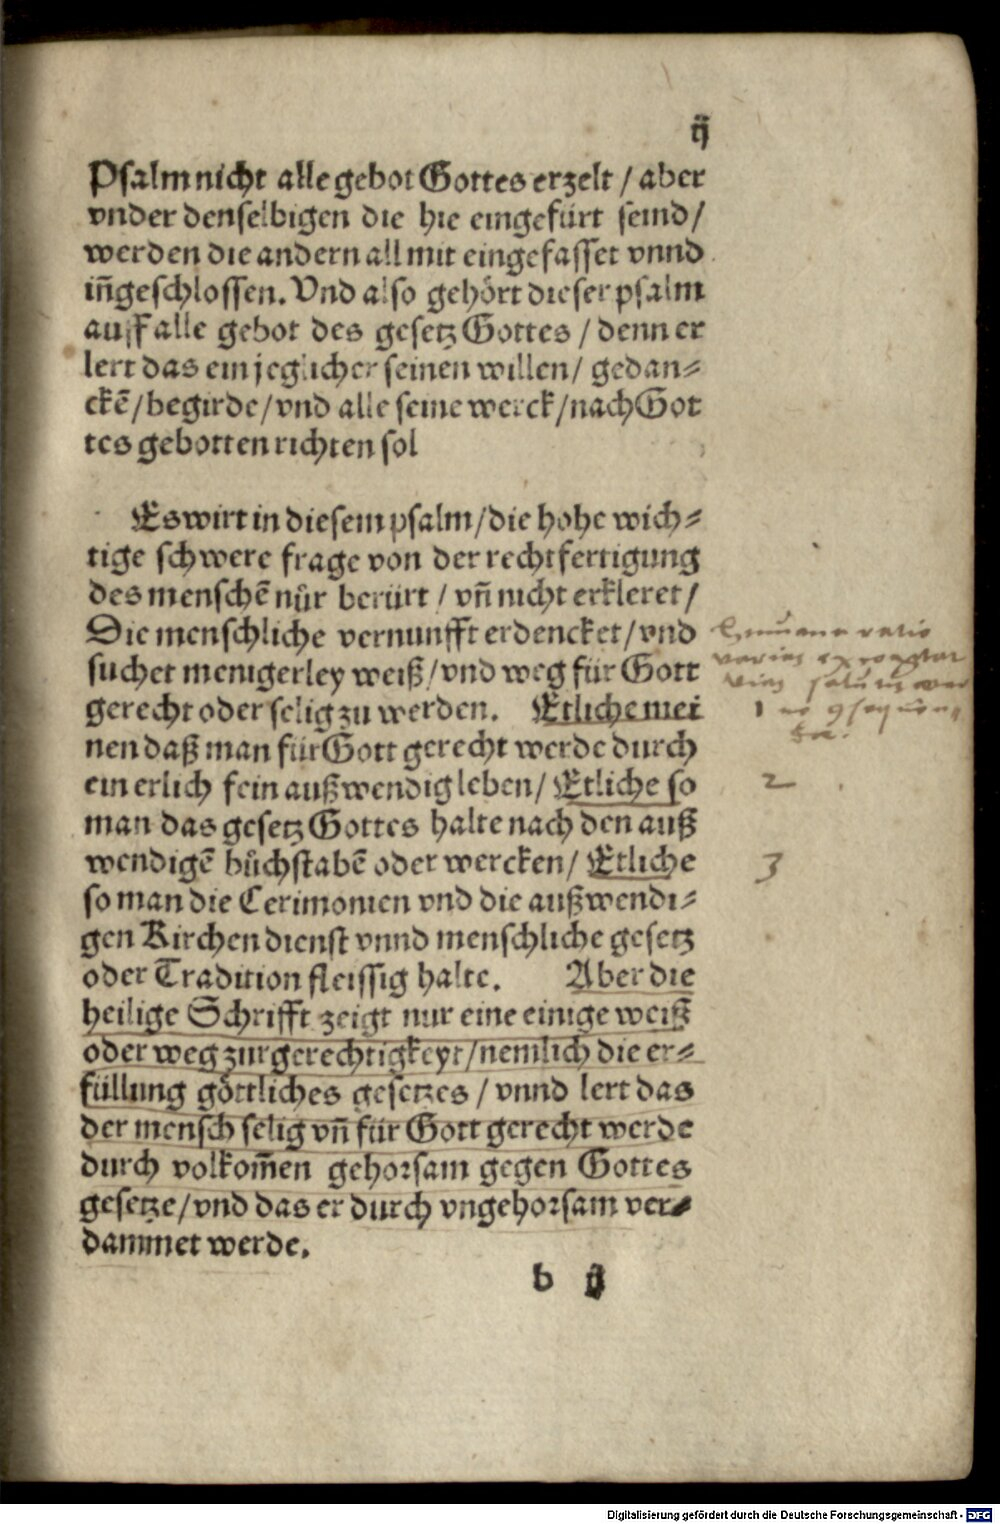 ij
Psalm nicht alle gebot Gottes erzelt / aber
vnder denselbigen die hie eingefürt seind /
werden die andern all mit eingefasset vnnd
iñgeschlossen. Vnd also gehört dieser psalm
auff alle gebot des gesetz Gottes / denn er
lert das ein jeglicher seinen willen / gedan⸗
ckẽ / begirde / vnd alle seine werck / nach Got
tes gebotten richten sol
Es wirt in diesem psalm / die hohe wich⸗
tige schwere frage von der rechtfertigung
des menschẽ nůr berürt / vñ nicht erkleret /
Die menschliche vernunfft erdencket / vnd
suchet menigerley weiß / vnd weg für Gott
gerecht oder selig zu werden. Etliche mei
nen daß man für Gott gerecht werde durch
ein erlich fein außwendig leben / Etliche so
man das gesetz Gottes halte nach den auß
wendigẽ bůchstabẽ oder wercken / Etliche
so man die Cerimonien vnd die außwendi⸗
gen Kirchen dienst vnnd menschliche gesetz
oder Tradition fleissig halte. Aber die
heilige Schrifft zeigt nur eine einige weiß
oder weg zur gerechtigkeyt / nemlich die er⸗
füllung göttliches gesetzes / vnnd lert das
der mensch selig vñ für Gott gerecht werde
durch volkom̃en gehorsam gegen Gottes
gesetze / vnd das er durch vngehorsam ver⸗
dammet werde.
b ij
humana ratio
varias excogitat
vias salutis
1
2
3
Digitalisierung gefördert durch die Deutsche Forschungsgemeinschaft - DFG